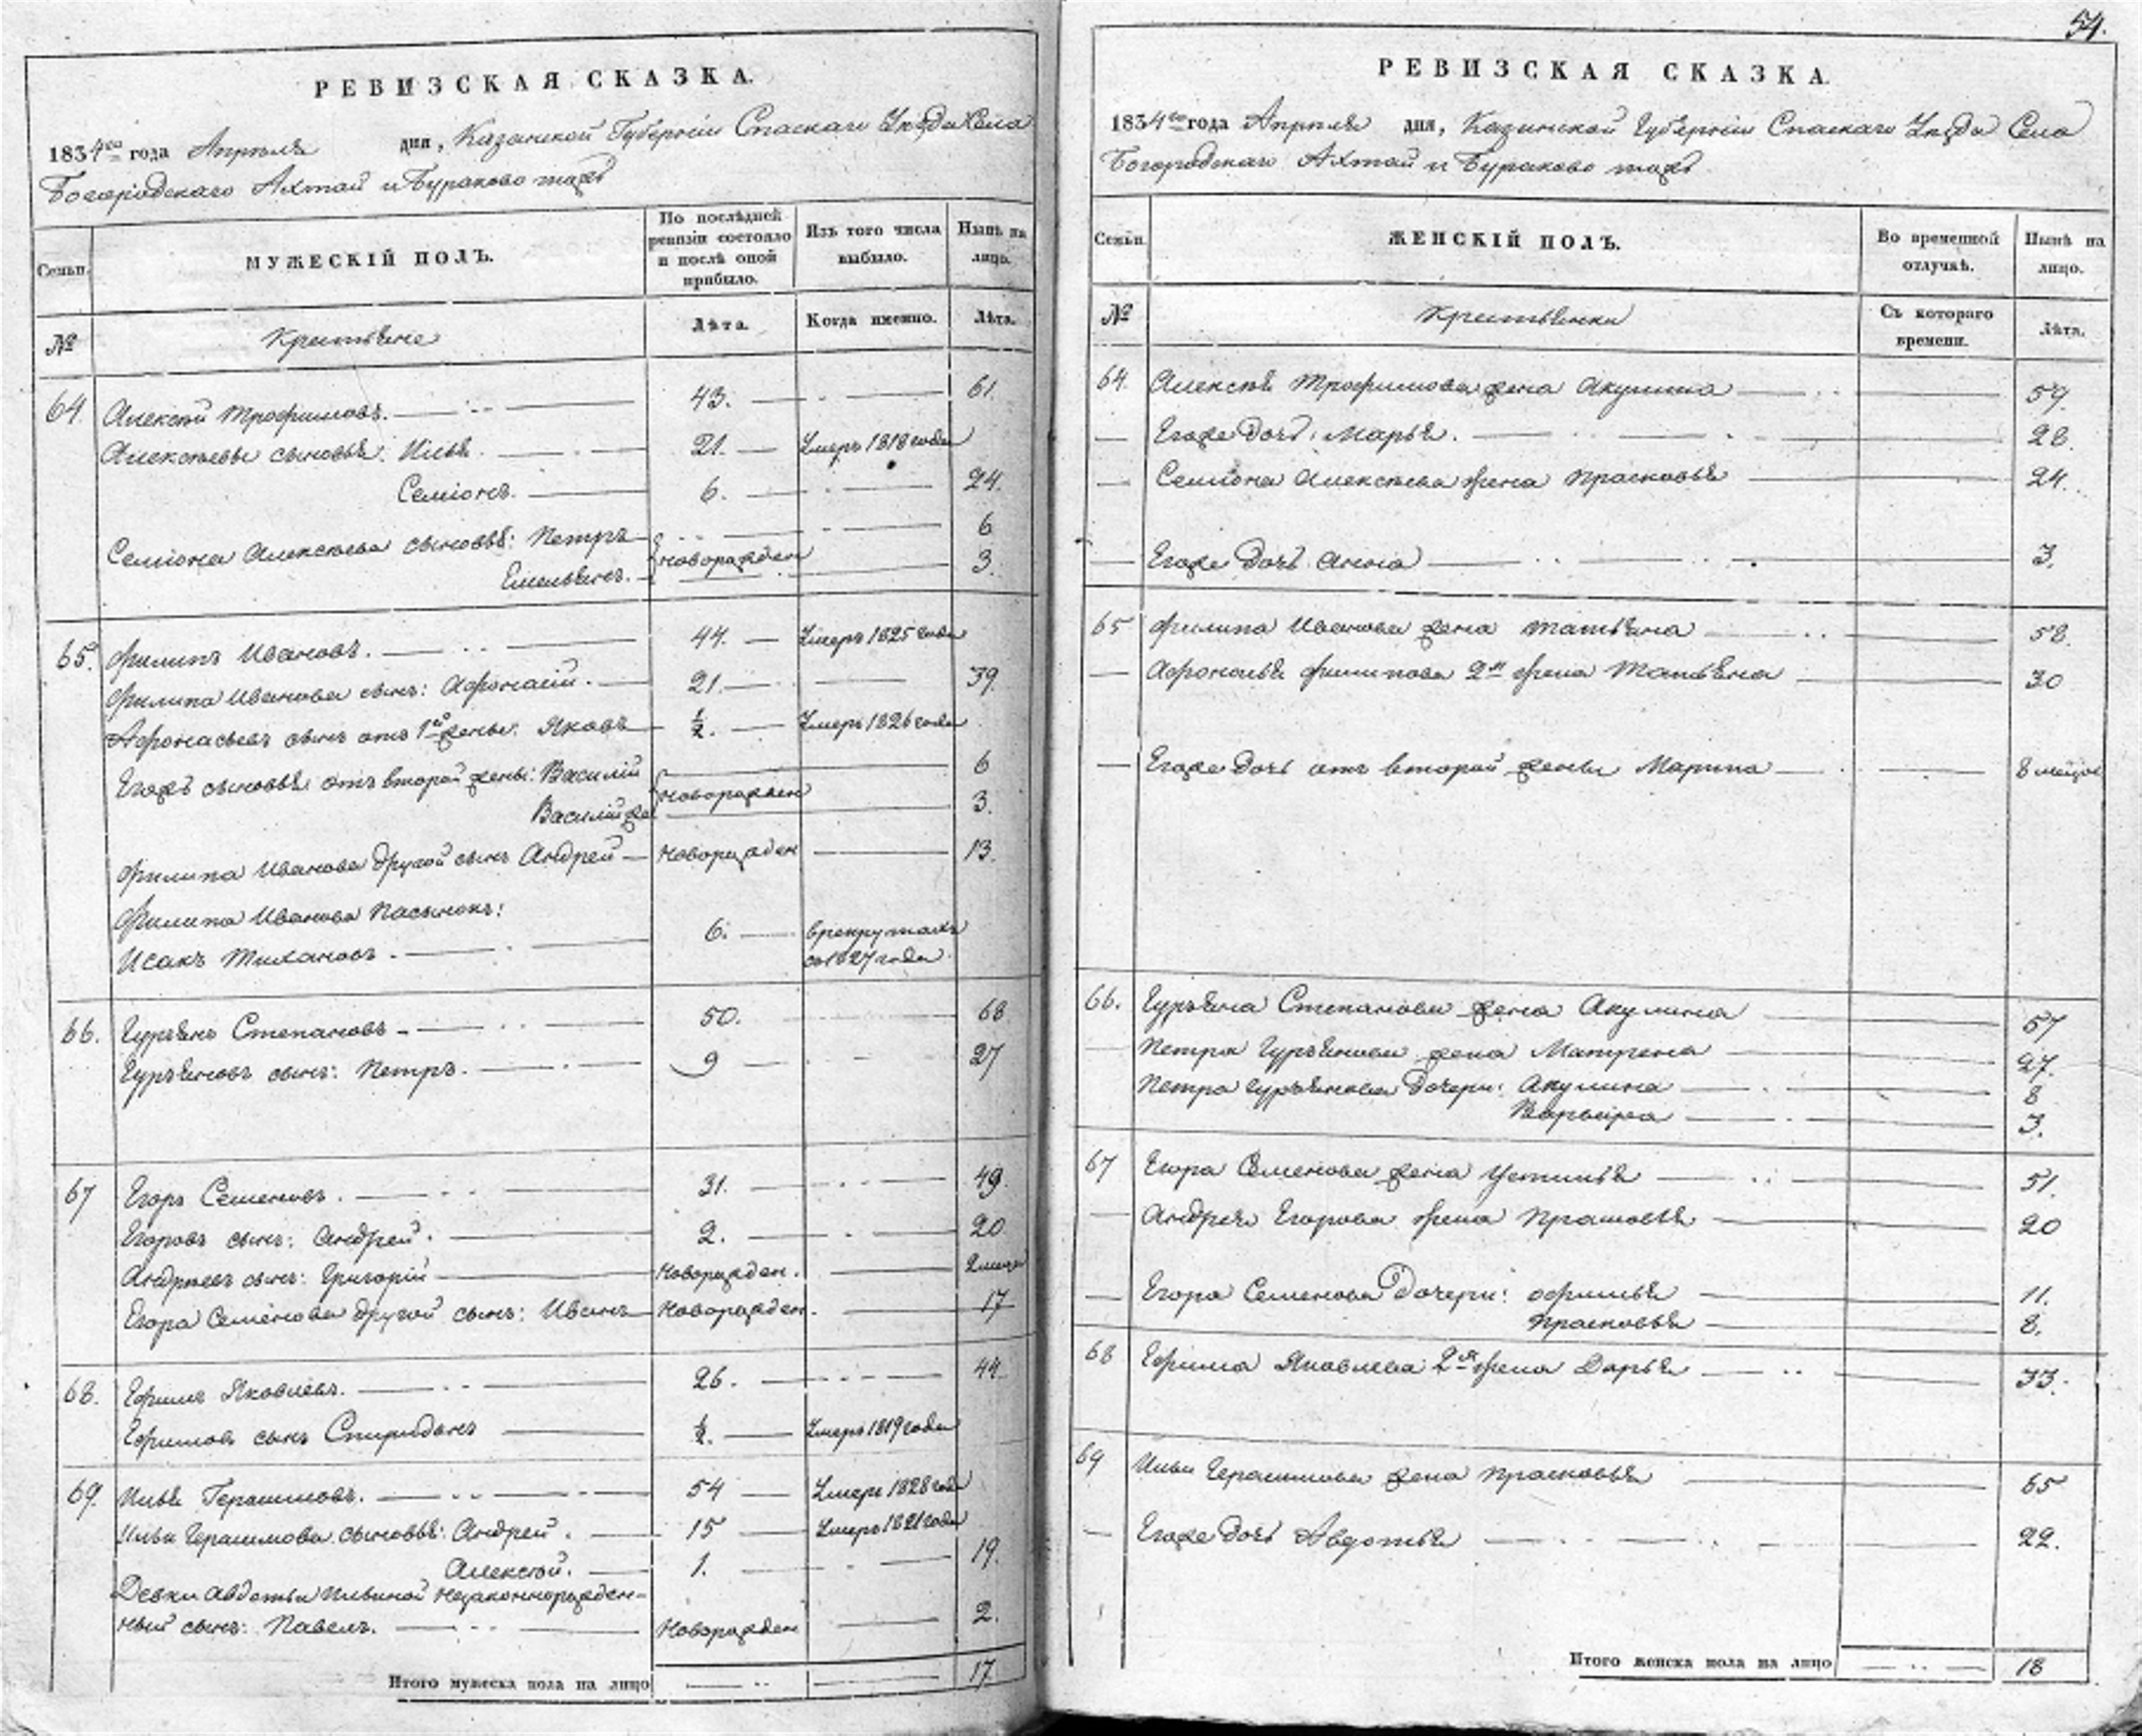 РЕВИЗСКАЯ СКАЗКА.
1834го года Апреля дня, Казанской Губернии Спаскаго Уѣзда Села
Богородскаго Ахтай и Бураково тожъ
Семьи.
МУЖЕСКІЙ ПОЛЪ.
По послѣдней ревизіи состояло и послѣ оной прибыло.
Изъ того числа выбыло.
Нынѣ на лицо.
№
Крестьяне
Лѣта.
Когда именно.
Лѣта.
64 Алексѣй Трофимовъ. 43. 61.
Алексѣевы сыновья: Илья. 21. Умеръ 1818 года
Семіонъ. 6. 24.
Семіона Алексѣева сыновья: Петръ 6
новорожден
Емельянъ. 3.
65. Филипъ Ивановъ. 44. Умеръ 1825 года
Филипа Иванова сынъ: Афонасій. 21. 39.
Афонасьевъ сынъ отъ 1й жены: Яковъ ½. Умеръ 1826 года
Егожъ сыновья отъ второй жены: Василій 6
новорожден
Василій же 3.
Филипа Иванова другой сынъ Андрей новорожден 13.
Филипа Иванова пасынокъ:
Исакъ Тихановъ. 6. в рекрутахъ
съ 1827 года
66. Гурьянъ Степановъ 50. 68
Гурьяновъ сынъ: Петръ. 9 27
67 Егоръ Семеновъ. 31. 49.
Егоровъ сынъ: Андрей. 2. 20
Андреевъ сынъ: Григорій Новорожден. 2 меца
Егора Семенова другой сынъ: Иванъ Новорожден. 17
68. Ефимъ Яковлевъ. 26. 44.
Ефимовъ сынъ Спиридонъ ½. Умеръ 1819 года
69. Илья Герасимовъ. 54 Умеръ 1828 года
Ильи Герасимова сыновья: Андрей. 15 Умеръ 1821 года
Алексѣй. 1. 19.
Девки Авдотьи Ильиной незаконнорожден-
ный сынъ: Павелъ. Новорожден 2.
Итого мужеска пола на лицо 17.
54.
РЕВИЗСКАЯ СКАЗКА.
1834го года Апреля дня, Казанской Губерніи Спаскаго Уѣзда Села
Богородскаго Ахтай и Бураково тожъ
Семьи.
ЖЕНСКІЙ ПОЛЪ.
Во временной отлучкѣ.
Нынѣ на лицо.
№
Крестьянки
Съ котораго времени.
Лѣта.
64. Алексѣя Трофимова жена Акулина 59.
Егоже дочь: Марья. 28.
Семіона Алексѣева жена Прасковья 24.
Егоже дочь Анна 3.
65 Филипа Иванова жена Татьяна 58.
Афонасья Филипова 2я жена Татьяна 30
Егоже дочь отъ второй жены Марина 8 месцов
66. Гурьяна Степанова жена Акулина 57
Петра Гурьянова жена Матрена 27.
Петра Гурьянова дочери: Акулина 8
Варвара 3.
67 Егора Семенова жена Устинья 51.
Андрея Егорова жена Прасковья 20
Егора Семенова дочери: Офимья 11.
Прасковья 8.
68 Ефима Яковлева 2я жена Дарья 33.
69 Ильи Герасимова жена Прасковья 65
Егоже дочь Авдотья 22.
Итого женска пола на лицо 18